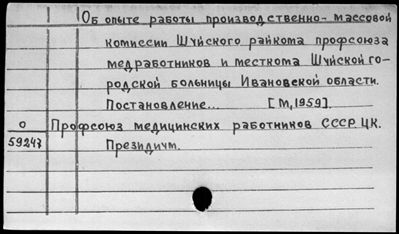 Об опыте работы производственно-массовой
комиссии Шуйского райкома профсоюза
медработников и месткома Шуйской го-
родской больницы Ивановской области.
Постановление... [М, 1959].
О Профсоюз медицинских работников СССР. ЦК.
59247 Президиум.